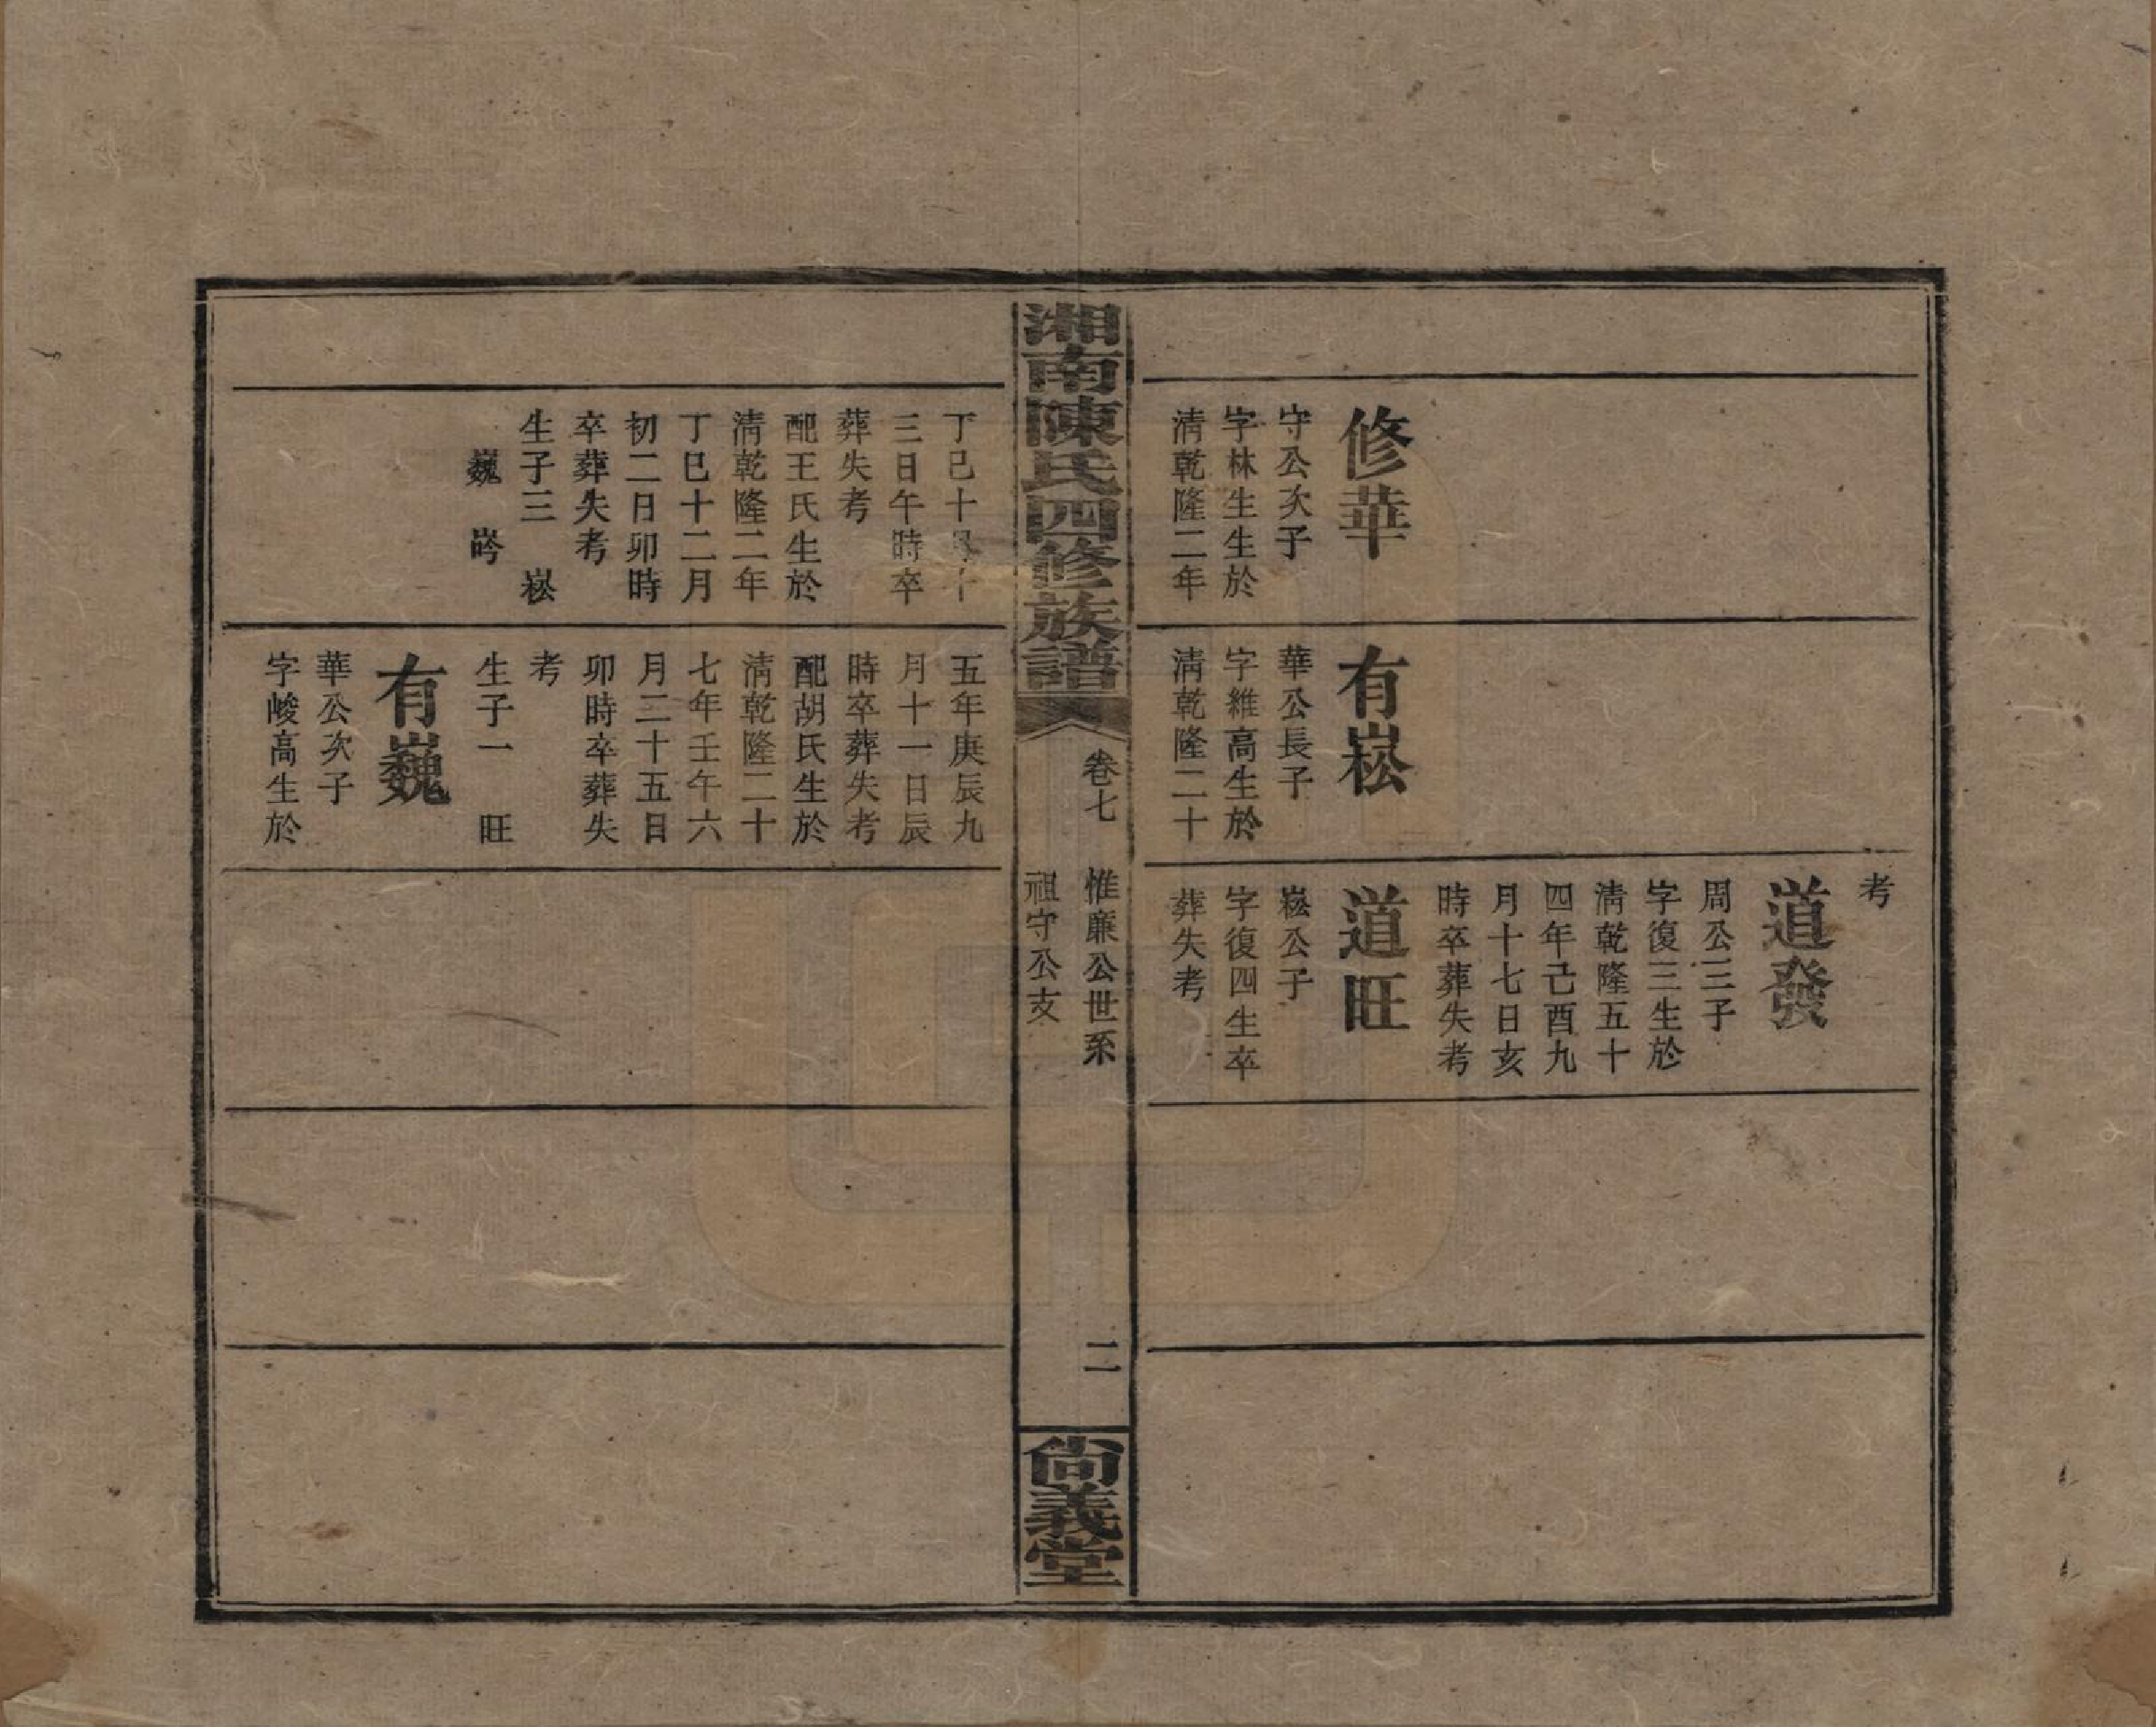 修華
守公次子
字林生生於
清乾隆二年
有崧
華公長子
字維高生於
清乾隆二十
考
道發
周公三子
字復三生於
清乾隆五十
四年己酉九
月十七日亥
時卒葬失考
道旺
崧公子
字復四生卒
葬失考
湘南陳氏四修族譜
卷七
惟廉公世系
祖守公支
二
尙義堂
丁巳十月十
三日午時卒
葬失考
配王氏生於
清乾隆二年
丁巳十二月
初二日卯時
卒葬失考
生子三 崧
巍 岑
五年庚辰九
月十一日辰
時卒葬失考
配胡氏生於
清乾隆二十
七年壬午六
月二十五日
卯時卒葬失
考
生子一 旺
有巍
華公次子
字峻高生於